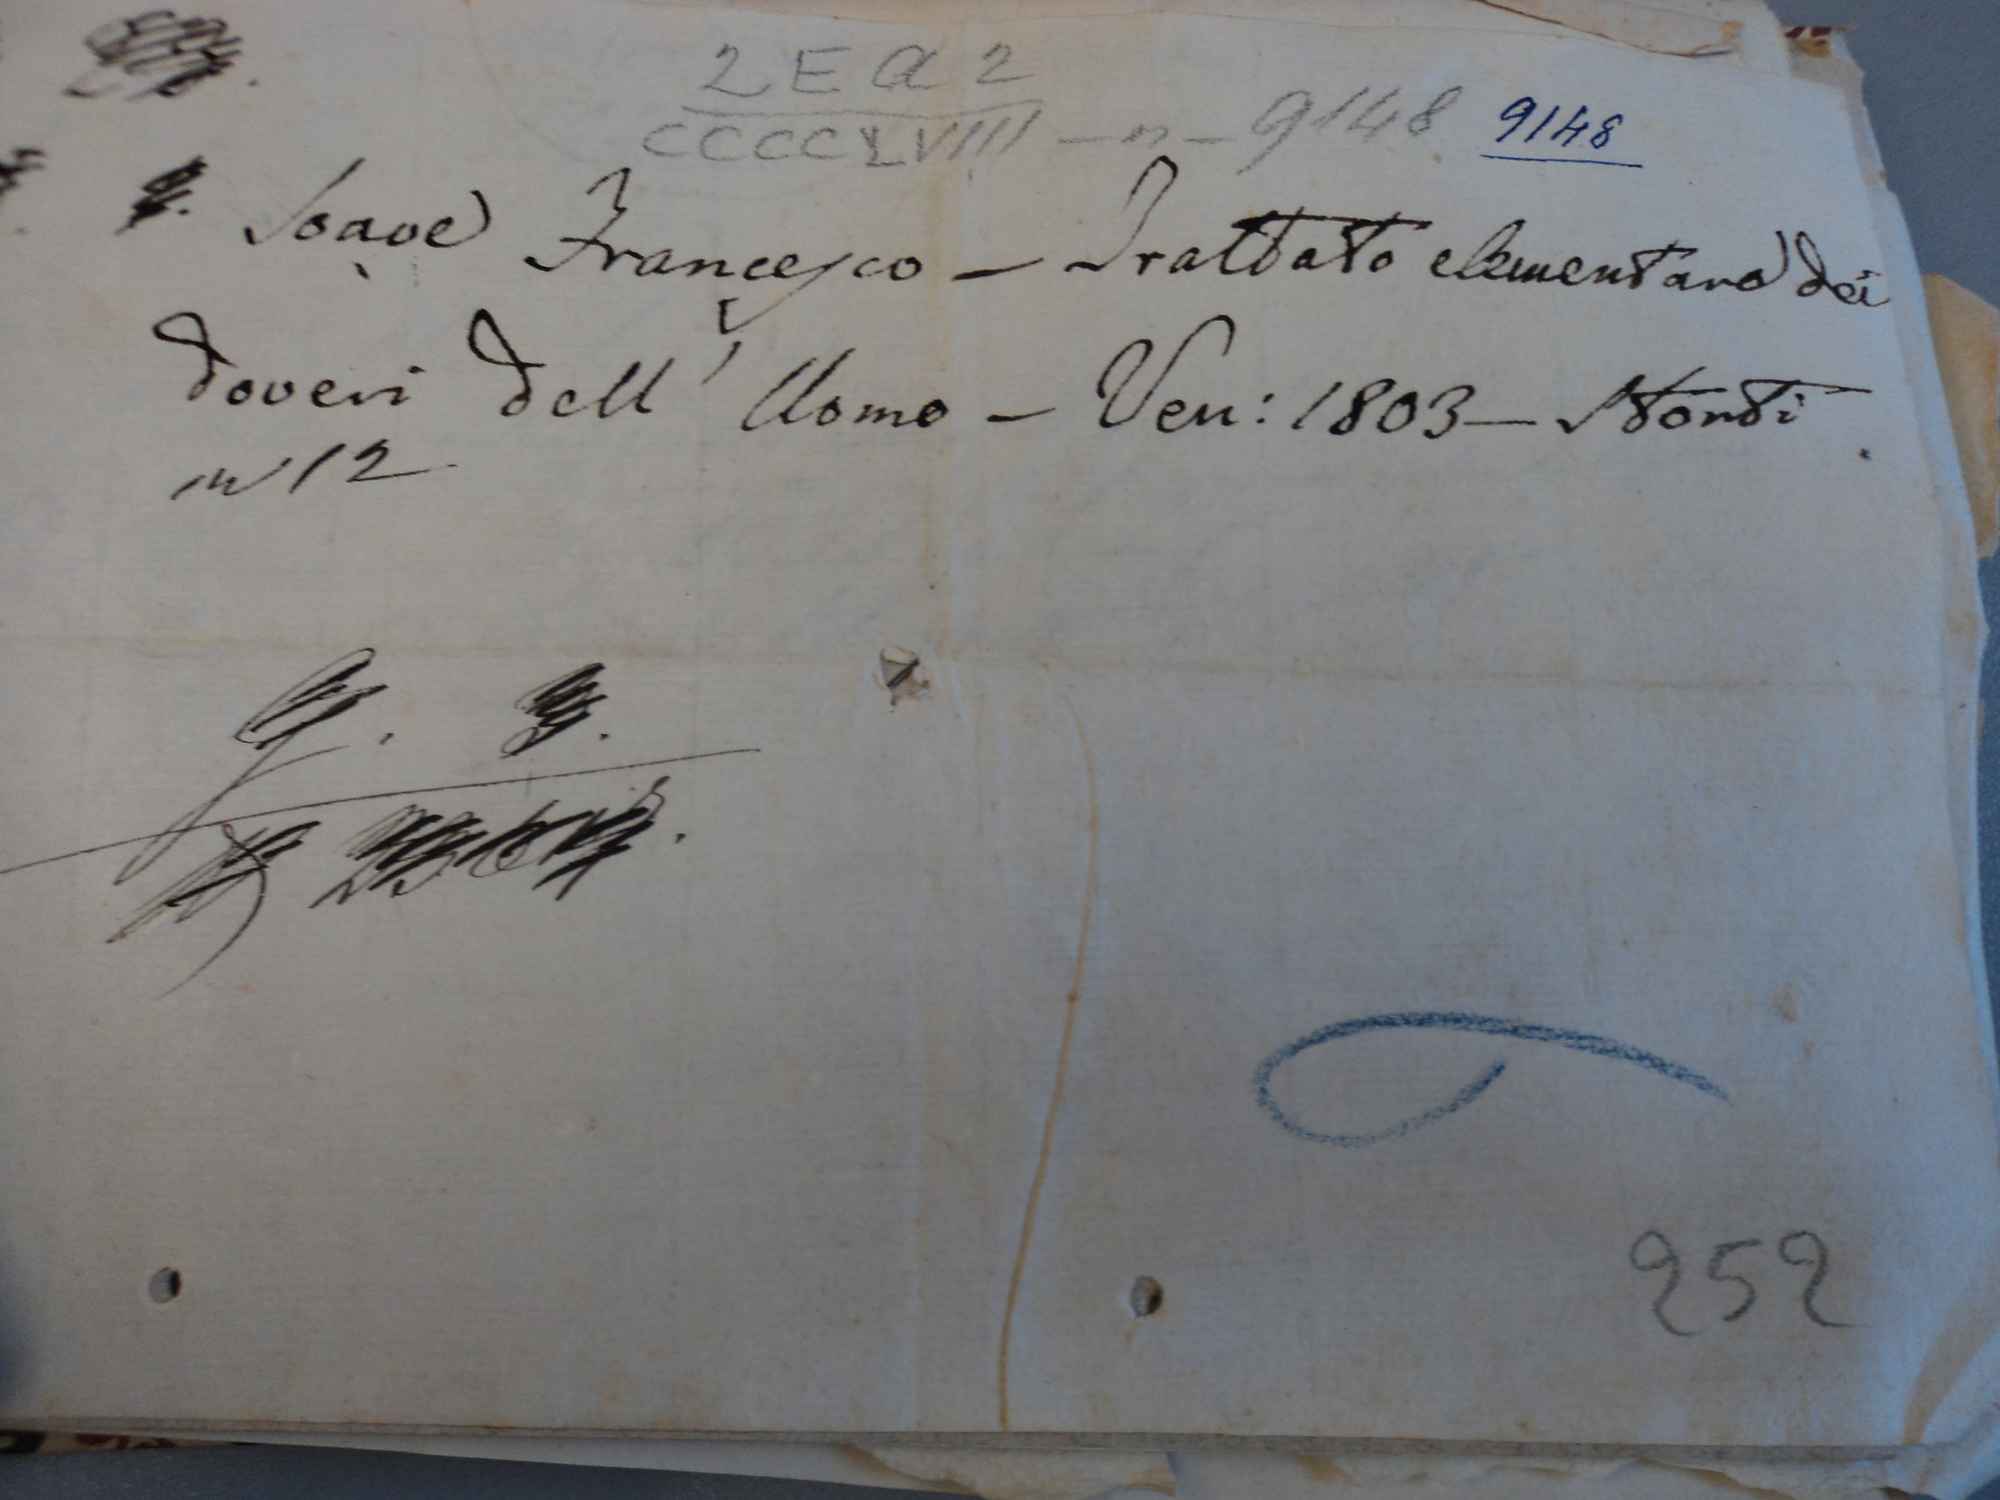 2 E a 2
CCCCLVIII — n — 9148 9148
Soave Francesco — Trattato elementare dei
doveri dell' Uomo — Ven: 1803 — Storti
in 12
252